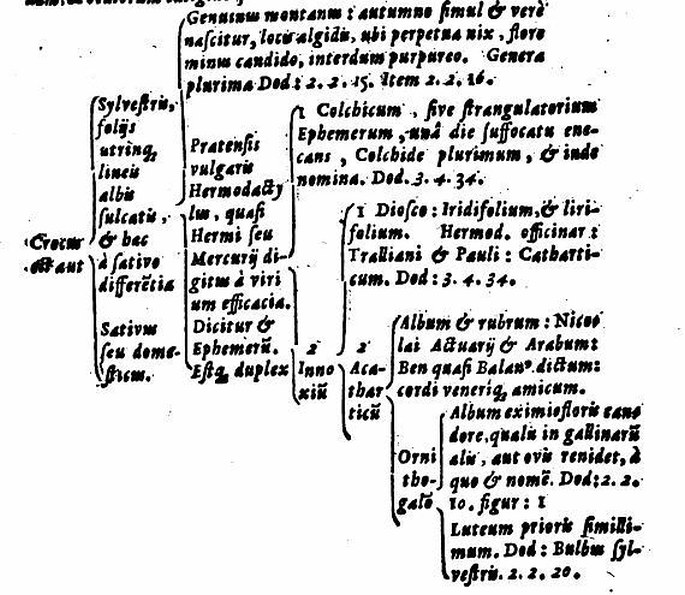 Crocus
est aut
Sylvestris,
folijs
utrinq,
lineis
albis
sulcatis,
& hac
à sativo
differētia
Genuinus montanus: autumno simul & vere
nascitur, locis algidis, ubi perpetua nix, flore
minus candido, interdum purpureo. Genera
plurima Dod: 2. 2. 15. Item 2. 2. 16.
Pratensis
vulgaris
Hermodacty
lus, quasi
Hermi seu
Mercurij di-
gitus à viri
um efficacia.
Dicitur &
Ephemerū.
Estq, duplex
1 Colchicum, sive strangulatorium
Ephemerum, unâ die suffocatu ene-
cans, Colchide plurimum, & inde
nomina. Dod. 3. 4. 34.
2
Inno
xiū
1 Diosco: Iridifolium, & liri-
folium. Hermod. officinar:
Tralliani & Pauli: Catharti-
cum. Dod: 3. 4. 34.
2
Aca-
thar
ticū
Album & rubrum: Nico-
lai Actuarij & Arabum:
Ben quasi Balanꝰ dictum:
cordi veneriq, amicum.
Orni
tho-
galō
Album eximio floris can-
dore, qualis in gallinarū
alis, aut ovis renidet, à
quo & nomē. Dod: 2. 2.
10. figur: 1
Luteum prioris simili-
mum. Dod: Bulbus syl-
vestris. 2. 2. 20.
Sativus
seu dome-
sticus.